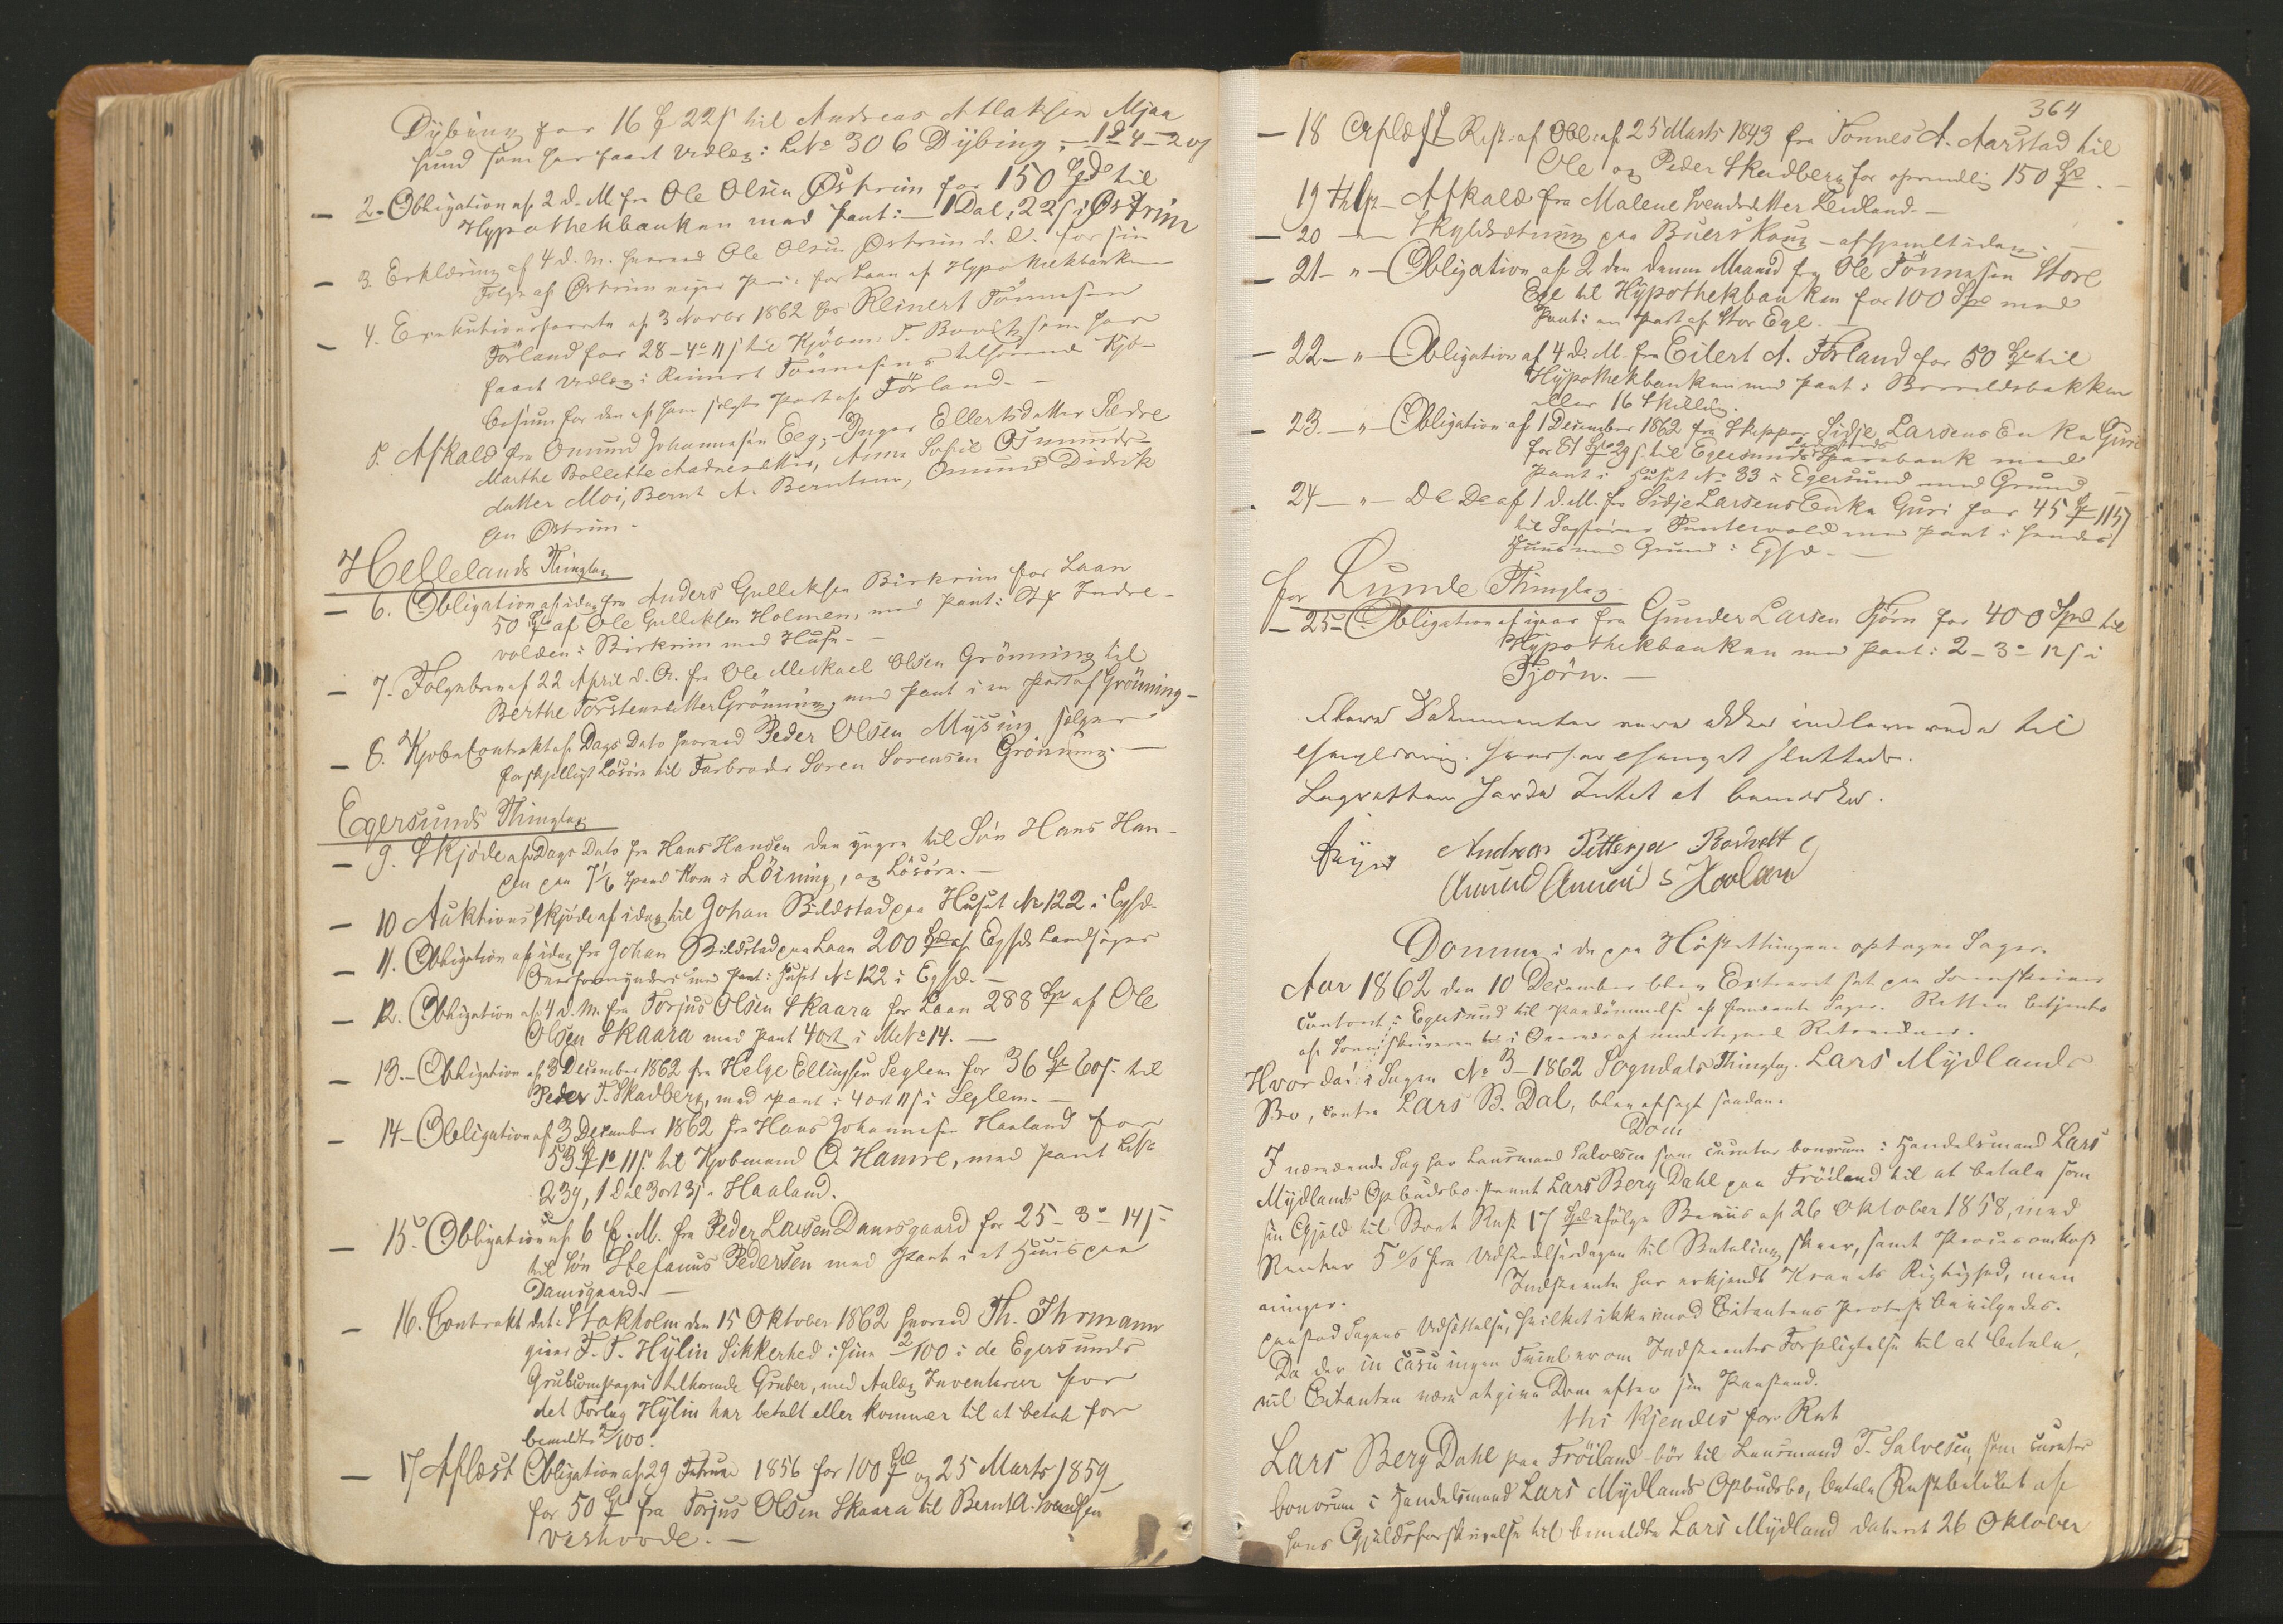 Dybing for 16 Spd 22 s til Andreas Atlaksen Mjaa
sund som har faaet Udlæg i LNo 306 Dybing,
— 2. Obligation af 2 d. M. fra Ole Olsen Østrim for 150 Spd til
Hypothekbanken med Pant: 1 Dal. 22 s i Østrim
— 3. Erklæring af 4 d. M. hvorved Ole Olsen Østrim for sin
af Østrim for Laan af Hypothekbanken
— 4. Executionsforretn. af 3 Novbr 1862 hos Reinert Tönnesen
Förland for 28 – 4 o 11 s til Kjöbm. som har
faaet Udlæg i Reinert Tönnesens tilkommende Kjö-
besum for den af ham solgte Part af Förland. —
5. Afkald fra Omund Johannesen Eeg, Inger Ellertsdatter Sædre
Marthe Bollette Aadnesdatter, Anne Sofie Osmunds-
datter Moi, Bernt A. Berntsen, Omund Didrik
Østrim.
Hellelands Thinglag
— 6. Obligation af idag fra Anders Gulleksen Birkrim for Laan
50 Spd af Ole Gulleksen Holmen, med Pant: Indre-
volden i Birkrim med Huse. —
— 7. Folgebrev af 22 April d. A. fra Ole Meckael Olsen Grönning til
Berthe Torstensdatter Grönning, med Pant i en Part af Grönning —
— 8. Kjøbecontrakt af Dags Dato hvorved Peder Olsen Mysing sælger
forskjelligt Løsøre til Farbroder Soren Sorensen Grönning. —
Egersunds Thinglag
— 9. Skjöde af Dags Dato fra Hans Hansen den yngre til Sön Hans Han-
sen paa 7 1/6 Spand Korn i Löining, og Lösöre. —
— 10 Auktionsskjöde af idag til Johan Bildstad paa Huset No 122 i Egsd.
— 11. Obligation af idag fra Johan Bildstad paa Laan 200 Spd af Egsds Landsogns
Overformynderi med Pant i Huset No 122 i Egsd. —
— 12. Obligation af 4 d. M. fra Torjus Olsen Skaara for Laan 288 Sp af Ole
Olsen Skaara med Pant 4 ort i MNo 14. —
— 13. — Obligation af 3 December 1862 fra Helge Ellingsen Seglem for 36 Sp 60 s. til
Peder T. Skadberg, med Pant i 4 ort 11 s i Seglem. —
— 14 — Obligation af 3 December 1862 fra Hans Johannesen Haaland for
53 Sp 1 o 11 s. til Kjobmand O. Hamre, med Pant LNo
239, 1 Dal 3 ort 3 s i Haaland.
— 15. Obligation af 6 f. M. fra Peder Larsen Damsgaard for 25 – 3 o – 14 s
til Sön Stefanus Pedersen med Pant i et Huus paa
Damsgaard. —
— 16. Contrakt dat. Stokholm den 15 Oktober 1862 hvorved Th. Thrmann
giver F. T. Hylin Sikkerhed i sine 2/100 i de Egersunds
Grubecompagni tilhörende Gruber, med Anlæg Inventarer for
det Forlag Hylin har betalt eller kommer til at betale for
bemeldte 2/100.
— 17 Aflæst Obligation af 29 Februar 1856 for 100 Spd og 25 Marts 1859
for 50 Sp fra Torjus Olsen Skaara til Bernt A. Svendsen
Veshovde. —
364
— 18 Aflæst Rest. af Obl. af 25 Marts 1843 fra Tonnes A. Aarstad til
Ole og Peder Skadberg for oprindelig 150 Sp. —
19 Thlst — Afkald fra Malene Svendsdatter Leidland. —
— 20 — " — Skyldsætning paa Buerskoug — —
— 21 — " — Obligation af 2 den denne Maaned fra Ole Tönnesen Store
Ege til Hypothekbanken for 100 Spd med
Pant: en Part af Stor Ege. —
— 22 — " — Obligation af 4 d. M. fra Eilert A. Förland for 50 Sp til
Hypothekbanken med Pant i
eller 16 Skilling.
— 23. — " — Obligation af 1 December 1862 fra Skipper Sidje Larsens Enke Guri
for 81 Spd 29 s. til Egersunds Landsogns Sparebank med
Pant i Huset No 33 i Egersund med Grund —
24 — " — Do Do af 1 d. M. fra Sidje Larsens Enke Guri for 45 Sp 115 s
til Sagförer Puntervold med Pant i hendes
Huus med Grund i Egsd. —
for Lunde Thinglag.
— 25 — Obligation af igaar fra Gunder Larsen Tjörn for 400 Spd til
Hypothekbanken med Pant: 2 – 3 o – 12 s i
Tjörn. —
Flere Dokumenter vare ikke indleverede til
thinglæsning. hvorfor thinget sluttede.
Lagretten havde Intet at bemærke.
Feyer Andreas Pettersen Rosholt
Dømme i de paa Høstthingene optagne Sager.
Aar 1862 den 10 December blev Extraret sat paa Sorenskriver
Contoret i Egersund til Paadömmelse af Sager. Retten betjentes
af Sorenskriveren i Overvær af undertegnede Retsvidner.
Hvorda: i Sagen No 3 – 1862 Sogndals Thinglag. Lars Mydlands
Bo, contra Lars B. Dal, blev afsagt saadan
Dom
I nærværende Sag har Lensmand Salvesen som curator bonorum i Handelsmand Lars
Mydlands Opbudsbo stevnt Lars Berg Dahl paa Fröiland til at betale som
sin Gjæld til Boet Rest 17 Spd ifølge Beviis af 26 Oktober 1858, med
Renter 5 % fra Udstædelsesdagen til Betaling skeer, samt Procesomkost
ninger. Indstevnte har erkjendt Kravets Rigtighed, men
paastod Sagens Udsættelse, hvilket ikke imod Citantens Protest bevilgedes.
Da der in casu ingen Tvivl er om Indstevntes Forpligtelse til at betale,
vil Citanten være at give Dom efter sin Paastand.
thi kjendes for Ret
Lars Berg Dahl paa Fröiland bör til Lensmand T. Salvesen, som curator
bonorum i Handelsmand Lars Mydlands Opbudsbo, betale Restbeløbet af
hans Gjældsforskrivelse til bemeldte Lars Mydland dateret 26 Oktober